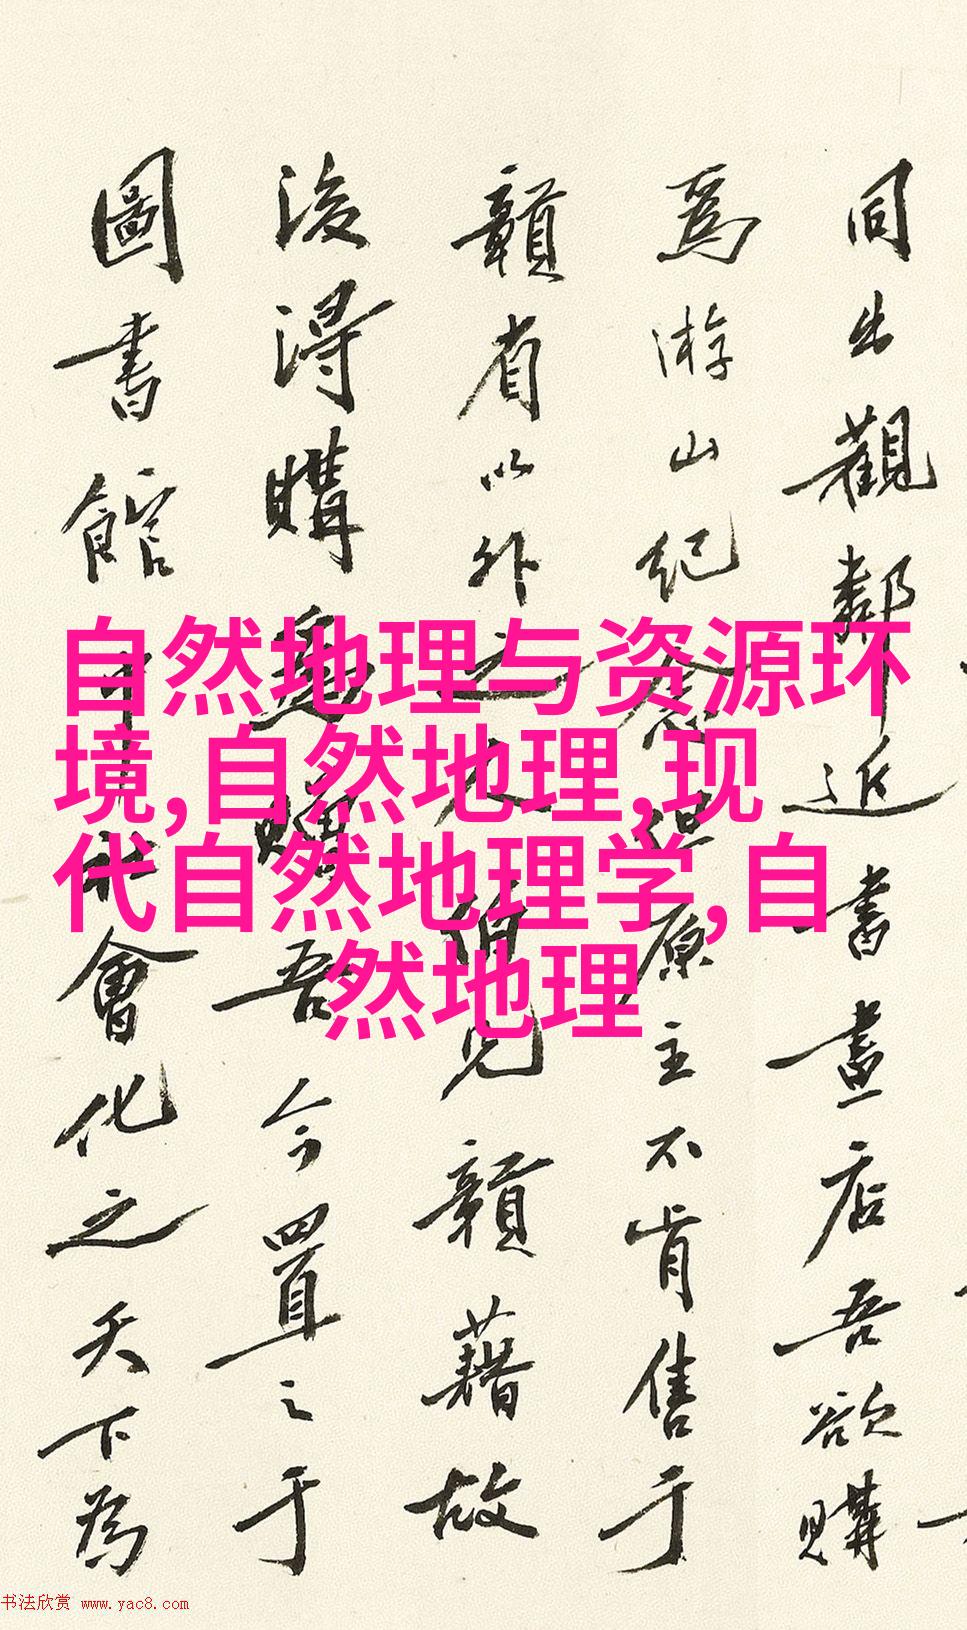 自然地理与资源环
境,自然地理,现
代自然地理学,自
然地理
同出觀鄰近書畫店吾欲購
爲游山紀念但原主不肯售于
贛省以外之人伯兄贛籍故
後得購贈吾今置之于
圖書館社會化之天下為
书法欣赏 www.yac8.com